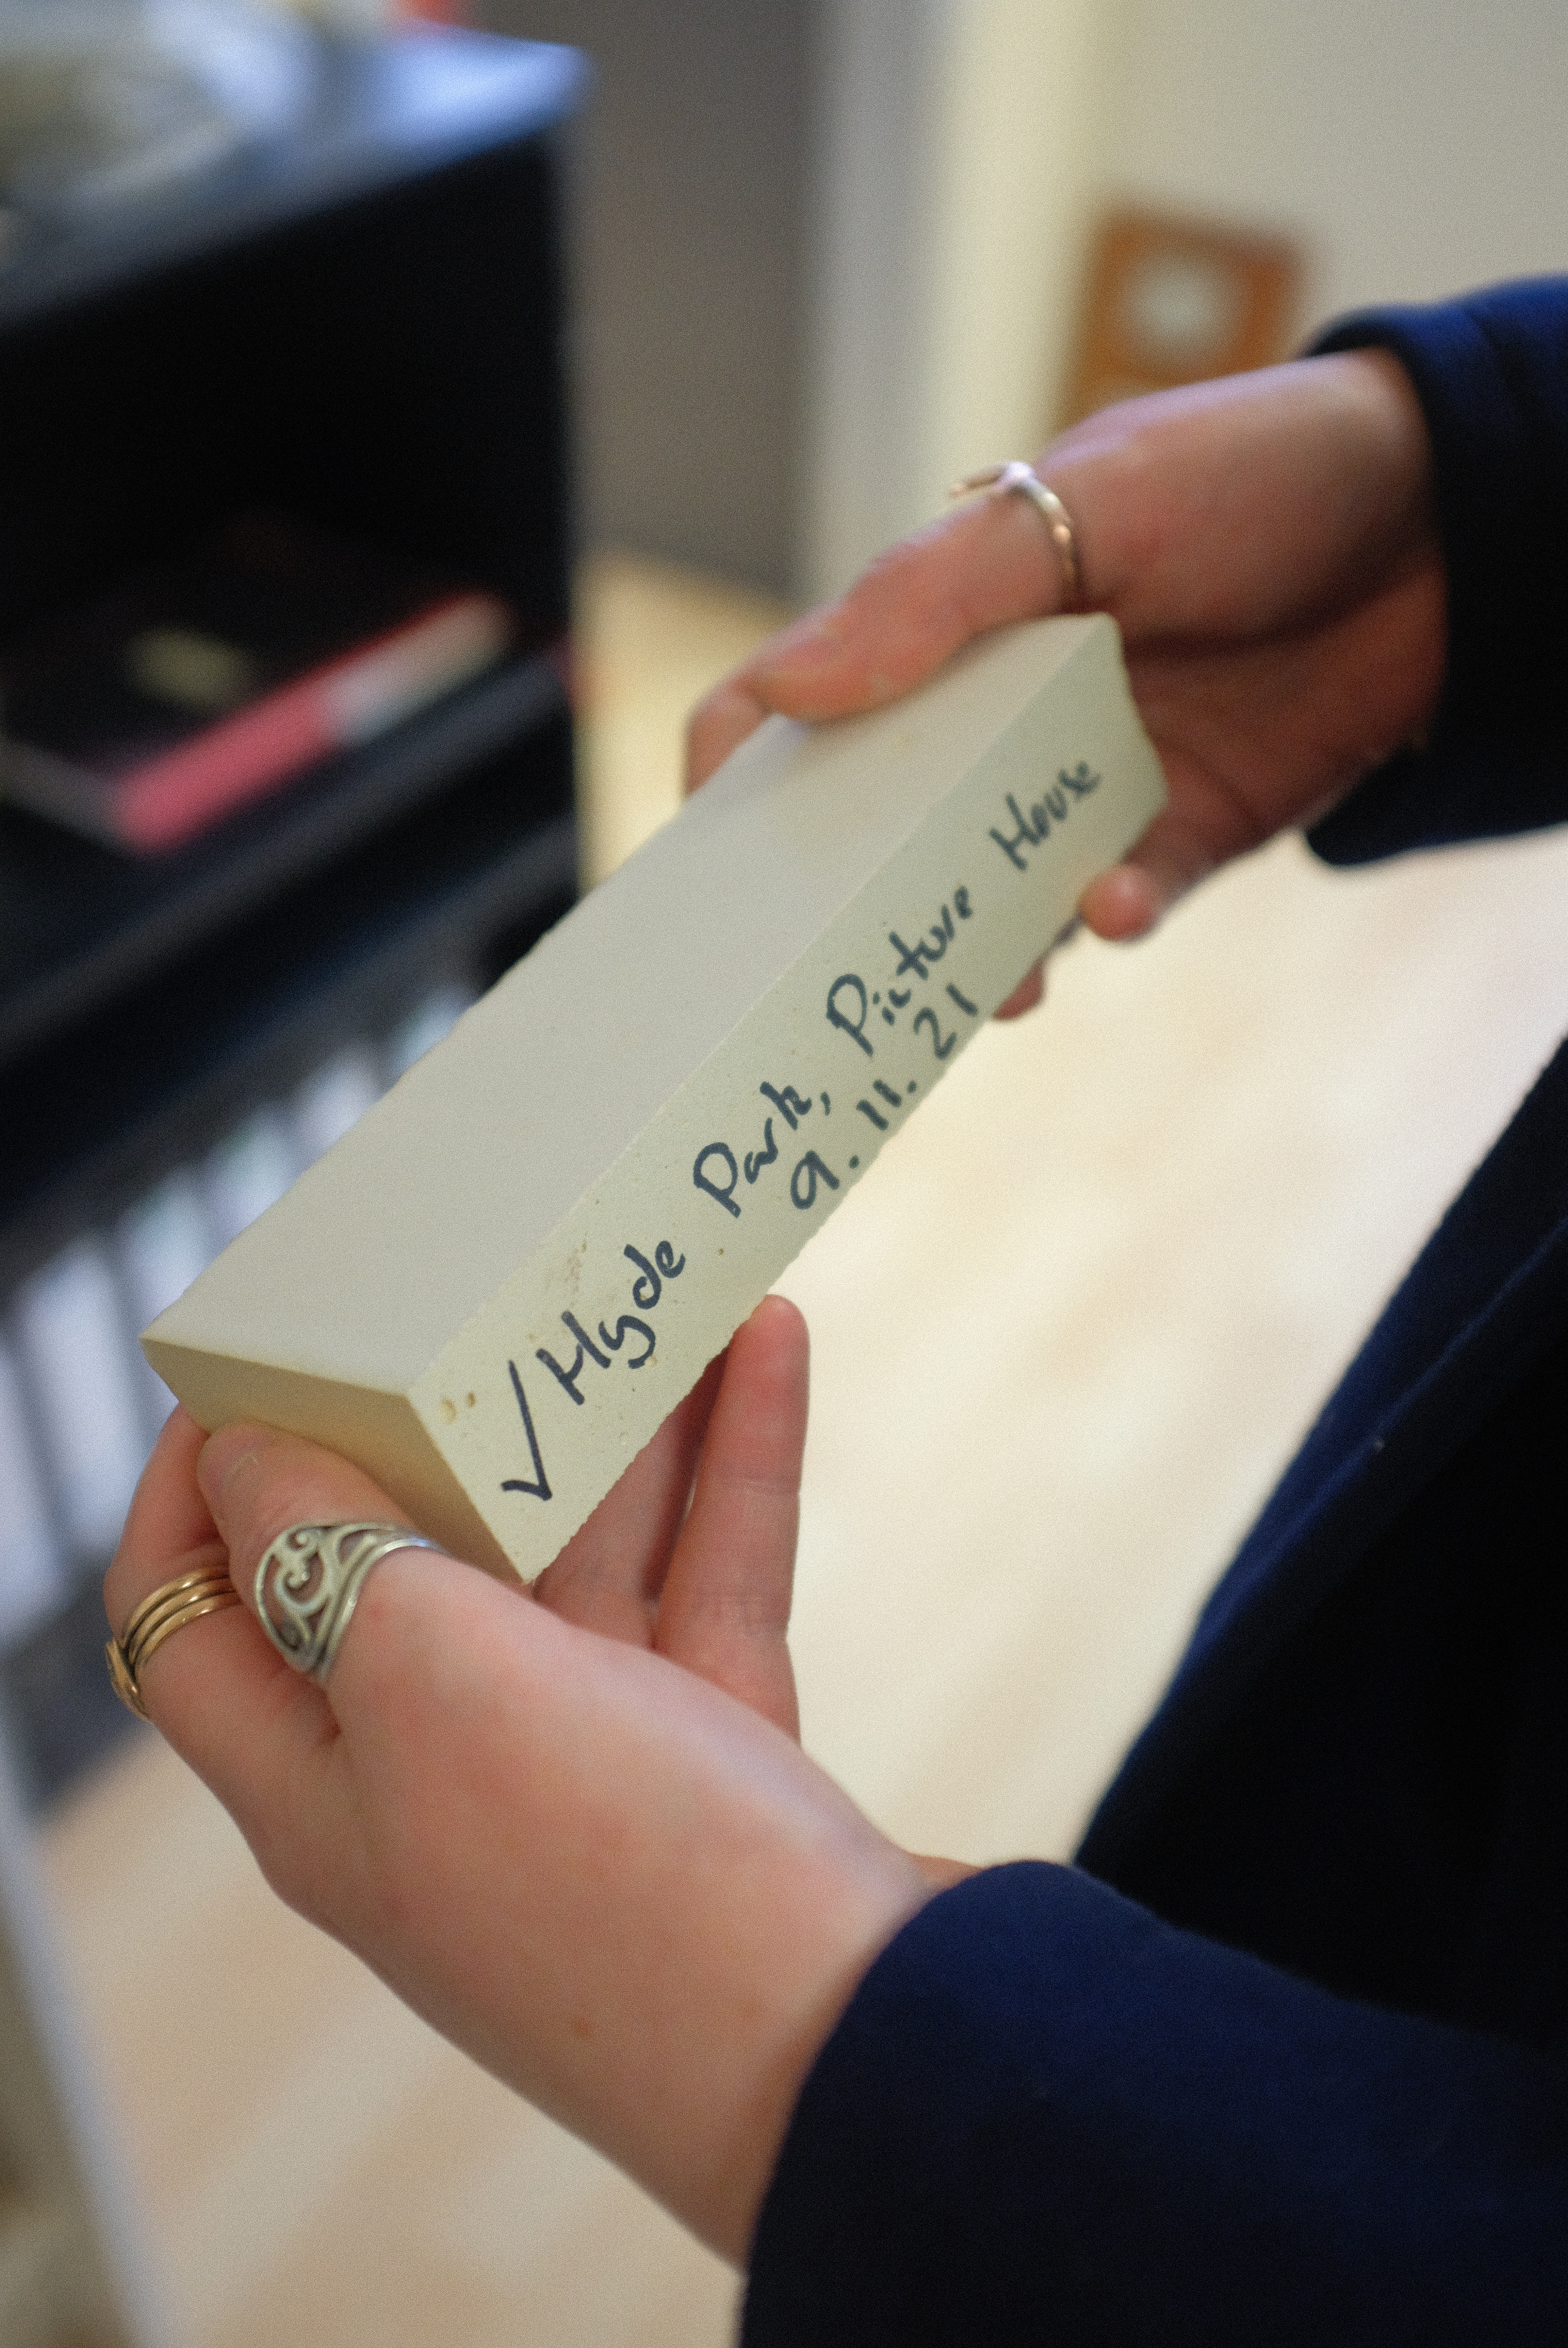 ✓ Hyde Park, Picture House
9.11.21